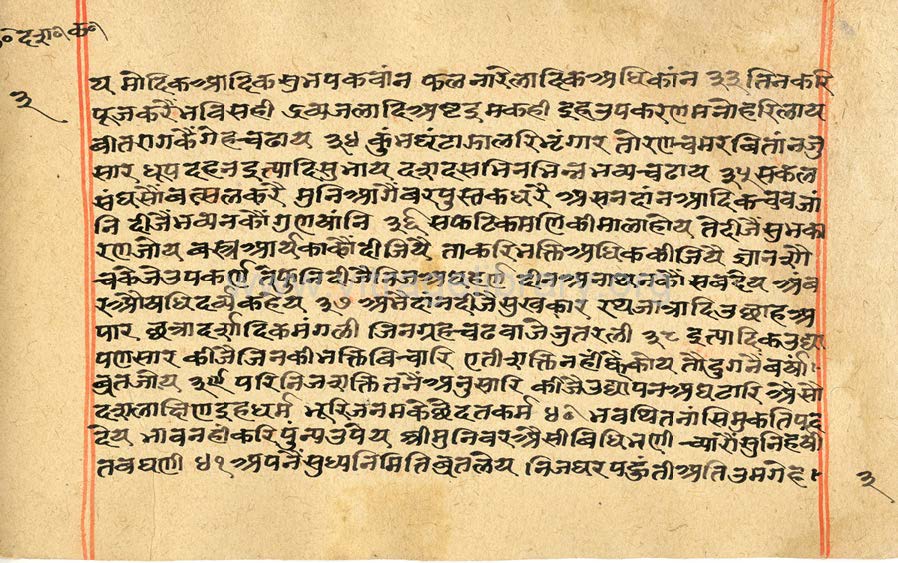 दश॰ क॰
३
य मोदिक आदिक सुभ पकवांन फल नारेलादिक अधिकांन ३३ तिन करि
पूज करैं भवि सही द्रव्य जलादि अष्ट इम कही इह उपकरण मनोहरि लाय
वीतरागकैं गेह चढाय ३४ कुंभ घंटा झालरि भृंगार तोरण चमर वितांन जु
सार धूपदहन इत्यादि सुभाय दश दस भिन भिन्न भव्य चढाय ३५ सकल
संघसौं वत्सल करै मुनि आगैं वर पुस्तक धरै असन दांन आदिक चव जां
नि दीजै भव्यनकौं गुणषांनि ३६ सफटिकमणिकी माला होय ते दीजैं सुभ का
रण जोय वस्त्र आर्यकाकौं दीजियै ताकरि भक्ति अधिक कीजियै ज्ञान सौ
चके जे उपकर्ण ते फुनि दीजै दीन अनाथनकौं सब देय अंब
र औषधि दर्व्य कहेय ३७ अभैदांन दीजै सुखकार रथजात्रादि उछाह अ
पार छत्रादर्शादिक मंगली जिनग्रह चढवाजे जुत रली ३८ इत्यादिक उद्या
पण सार कीजै जिनकी भक्ति विचारि एती शक्ति नही ह्वै कोय तौ दुगनैं वर्ष
व्रत जोय ३९ परि निज शक्ति तनैं अनुसारि कीजे उद्यापन अघटारि अैसौ
दशलाक्षिण इह धर्म भूरि जनमके छेदत कर्म ४० भवथिति नांसि मुकति पद
देय भावन ही करि पुंन्य उपेय श्री मुनिवर अैसी विधि भणी च्यारौं सुनि हरषी
तव घणी ४१ अपनैं सुध्य निमिति व्रत लेय निज घर पहुंती अति उमगेह
३
www.vitragelibrary.org